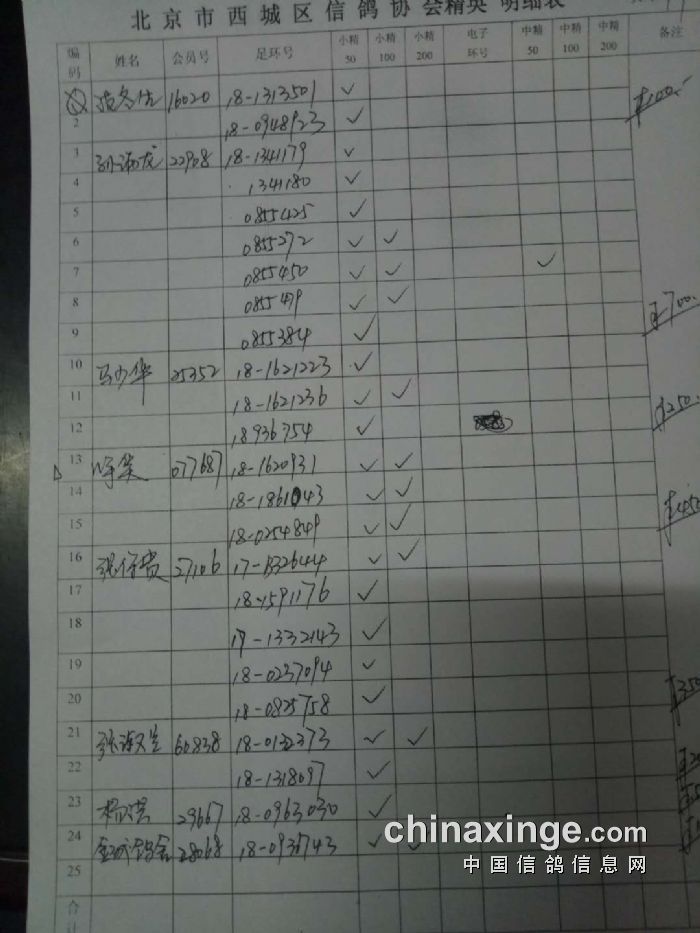 北京市西城区信鸽协会精英 明细表
编码 姓名 会员号 足环号 小精50 小精100 小精200 电子环号 中精50 中精100 中精200 备注
16020 18-1313501 ✓
2 18-0948923 ✓
3 22908 18-1341179 ✓
4 1341180 ✓
5 0855425 ✓
6 0855272 ✓ ✓
7 0855450 ✓ ✓ ✓
8 0855479 ✓ ✓
9 0855384 ✓
10 马少华 25352 18-1621223 ✓
11 18-1621236 ✓ ✓
12 18936754 ✓
13 077687 18-1620931 ✓ ✓
14 ✓ ✓
15 18-0254849 ✓ ✓
16 27106 17-1332644 ✓ ✓
17 18-1591176 ✓
18 17-1332143 ✓
19 18-0237094 ✓
20 18-0825758 ✓
21 60838 18-0132373 ✓ ✓
22 18-1318097 ✓
23 杨洪 29667 18-0963030 ✓
24 28068 ✓
25
合计
chinaxinge.com
中国信鸽信息网